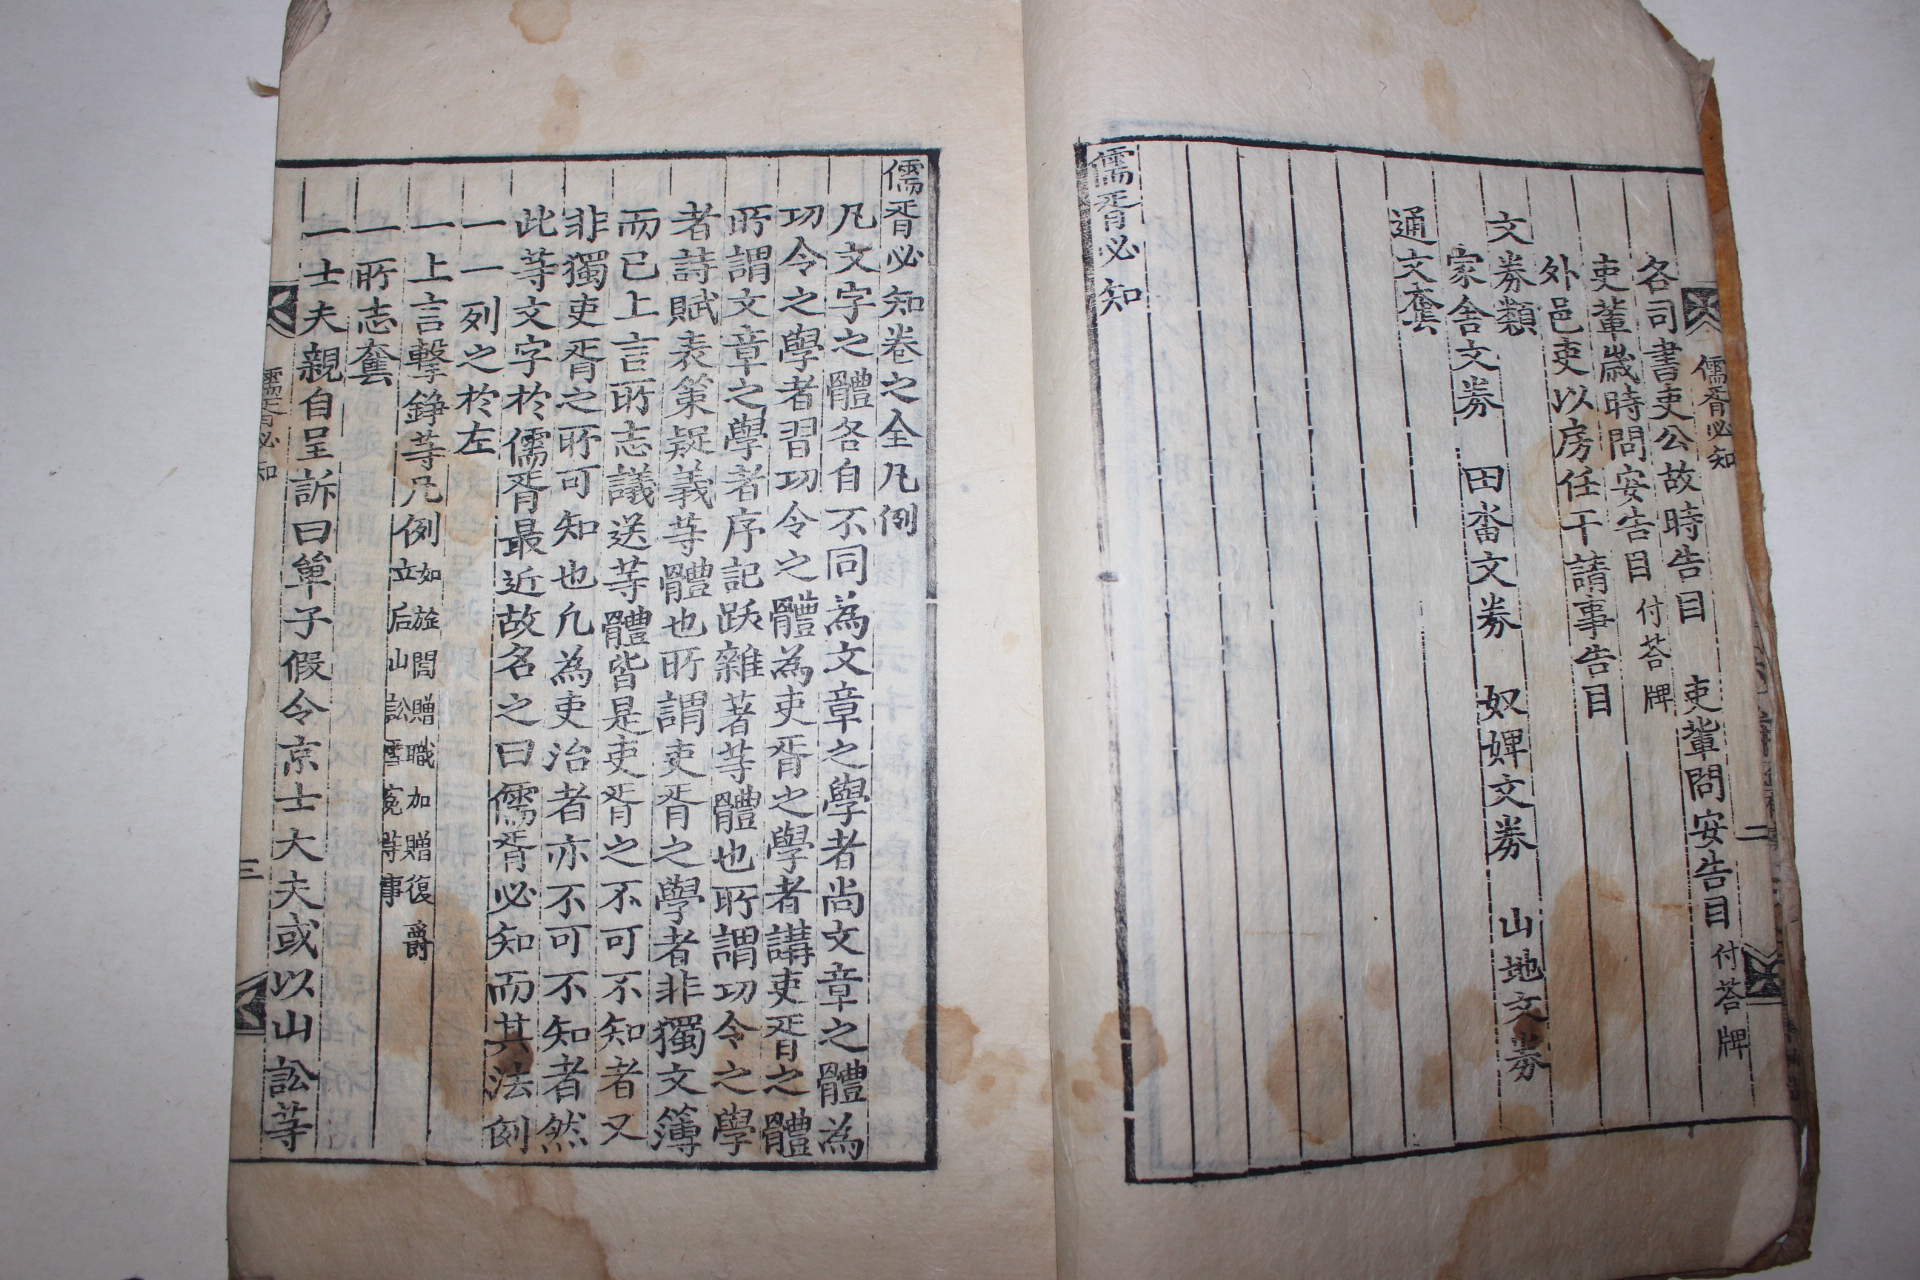 各司書吏公故時告目 吏輩問安告目付荅牌
吏輩歲時問安告目付荅牌
外邑吏以房任干請事告目
文券類
家舍文券 田畓文券 奴婢文券 山地文券
通文套
儒胥必知
儒胥必知
二
儒胥必知卷之全凡例
凡文字之體各自不同為文章之學者尚文章之體為
功令之學者習功令之體為吏胥之學者講吏胥之體
所謂文章之學者序記跋雜著等體也所謂功令之學
者詩賦表策疑義等體也所謂吏胥之學者非獨文簿
而已上言所志議送等體皆是吏胥之不可不知者又
非獨吏胥之所可知也凡為吏治者亦不可不知者然
此等文字於儒胥最近故名之曰儒胥必知而其法例
一一列之於左
一上言擊錚等凡例如旌閭贈職加贈復爵立后山訟雪寃等事
一所志套
一士夫親自呈訴曰單子假令京士大夫或以山訟等
儒胥必知
三